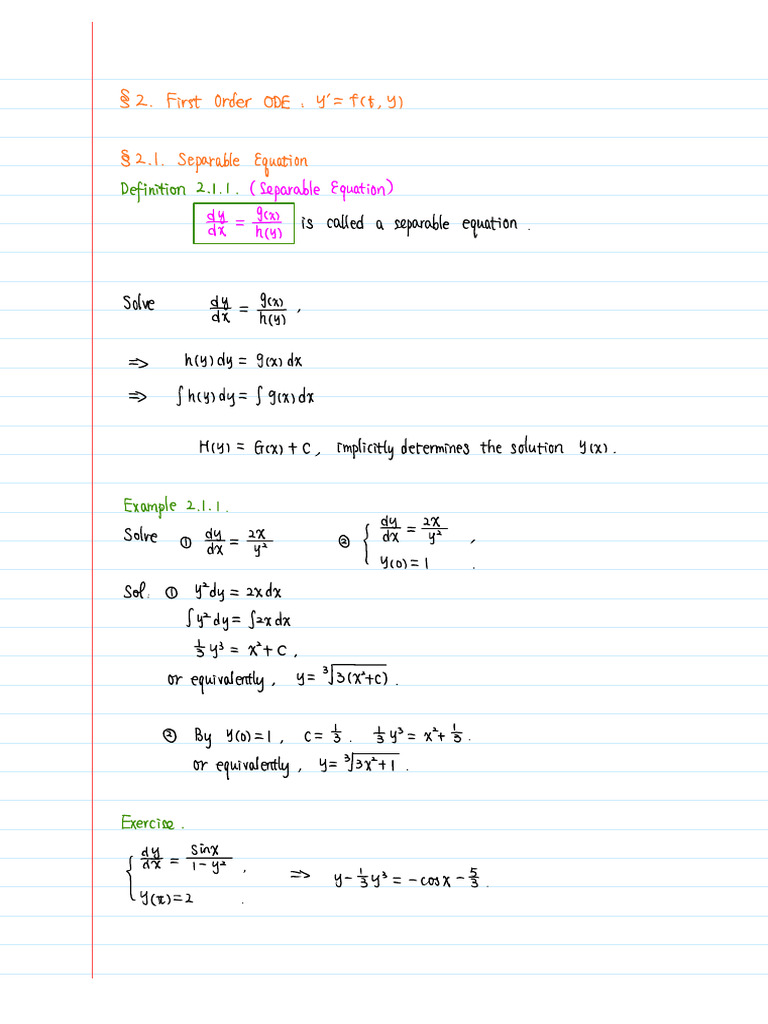 §2. First Order ODE : y' = f(t, y)
§2.1. Separable Equation
Definition 2.1.1. (Separable Equation)
dy/dx = g(x)/h(y) is called a separable equation.
Solve dy/dx = g(x)/h(y),
⇒ h(y)dy = g(x)dx
⇒ ∫h(y)dy = ∫g(x)dx
H(y) = G(x) + C, implicitly determines the solution y(x).
Example 2.1.1.
Solve ① dy/dx = 2x/y² ② { dy/dx = 2x/y², y(0) = 1.
Sol. ① y²dy = 2xdx
∫y²dy = ∫2xdx
1/3 y³ = x² + C,
or equivalently, y = ³√(3(x²+C)).
② By y(0) = 1, C = 1/3. 1/3 y³ = x² + 1/3.
or equivalently, y = ³√(3x²+1).
Exercise.
{ dy/dx = sinx/(1-y²), y(π) = 2. ⇒ y - 1/3 y³ = -cosx - 5/3.